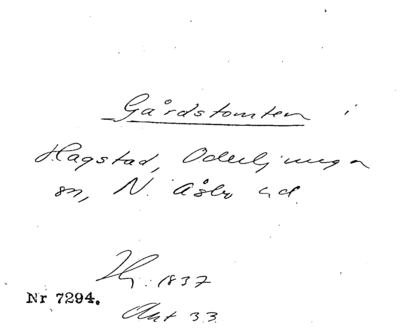 Gårdstomten i
Hagstad, Oderljunga
sn, N. Åsbo hd.
Hg. 1837
Nr 7294.
Akt 33